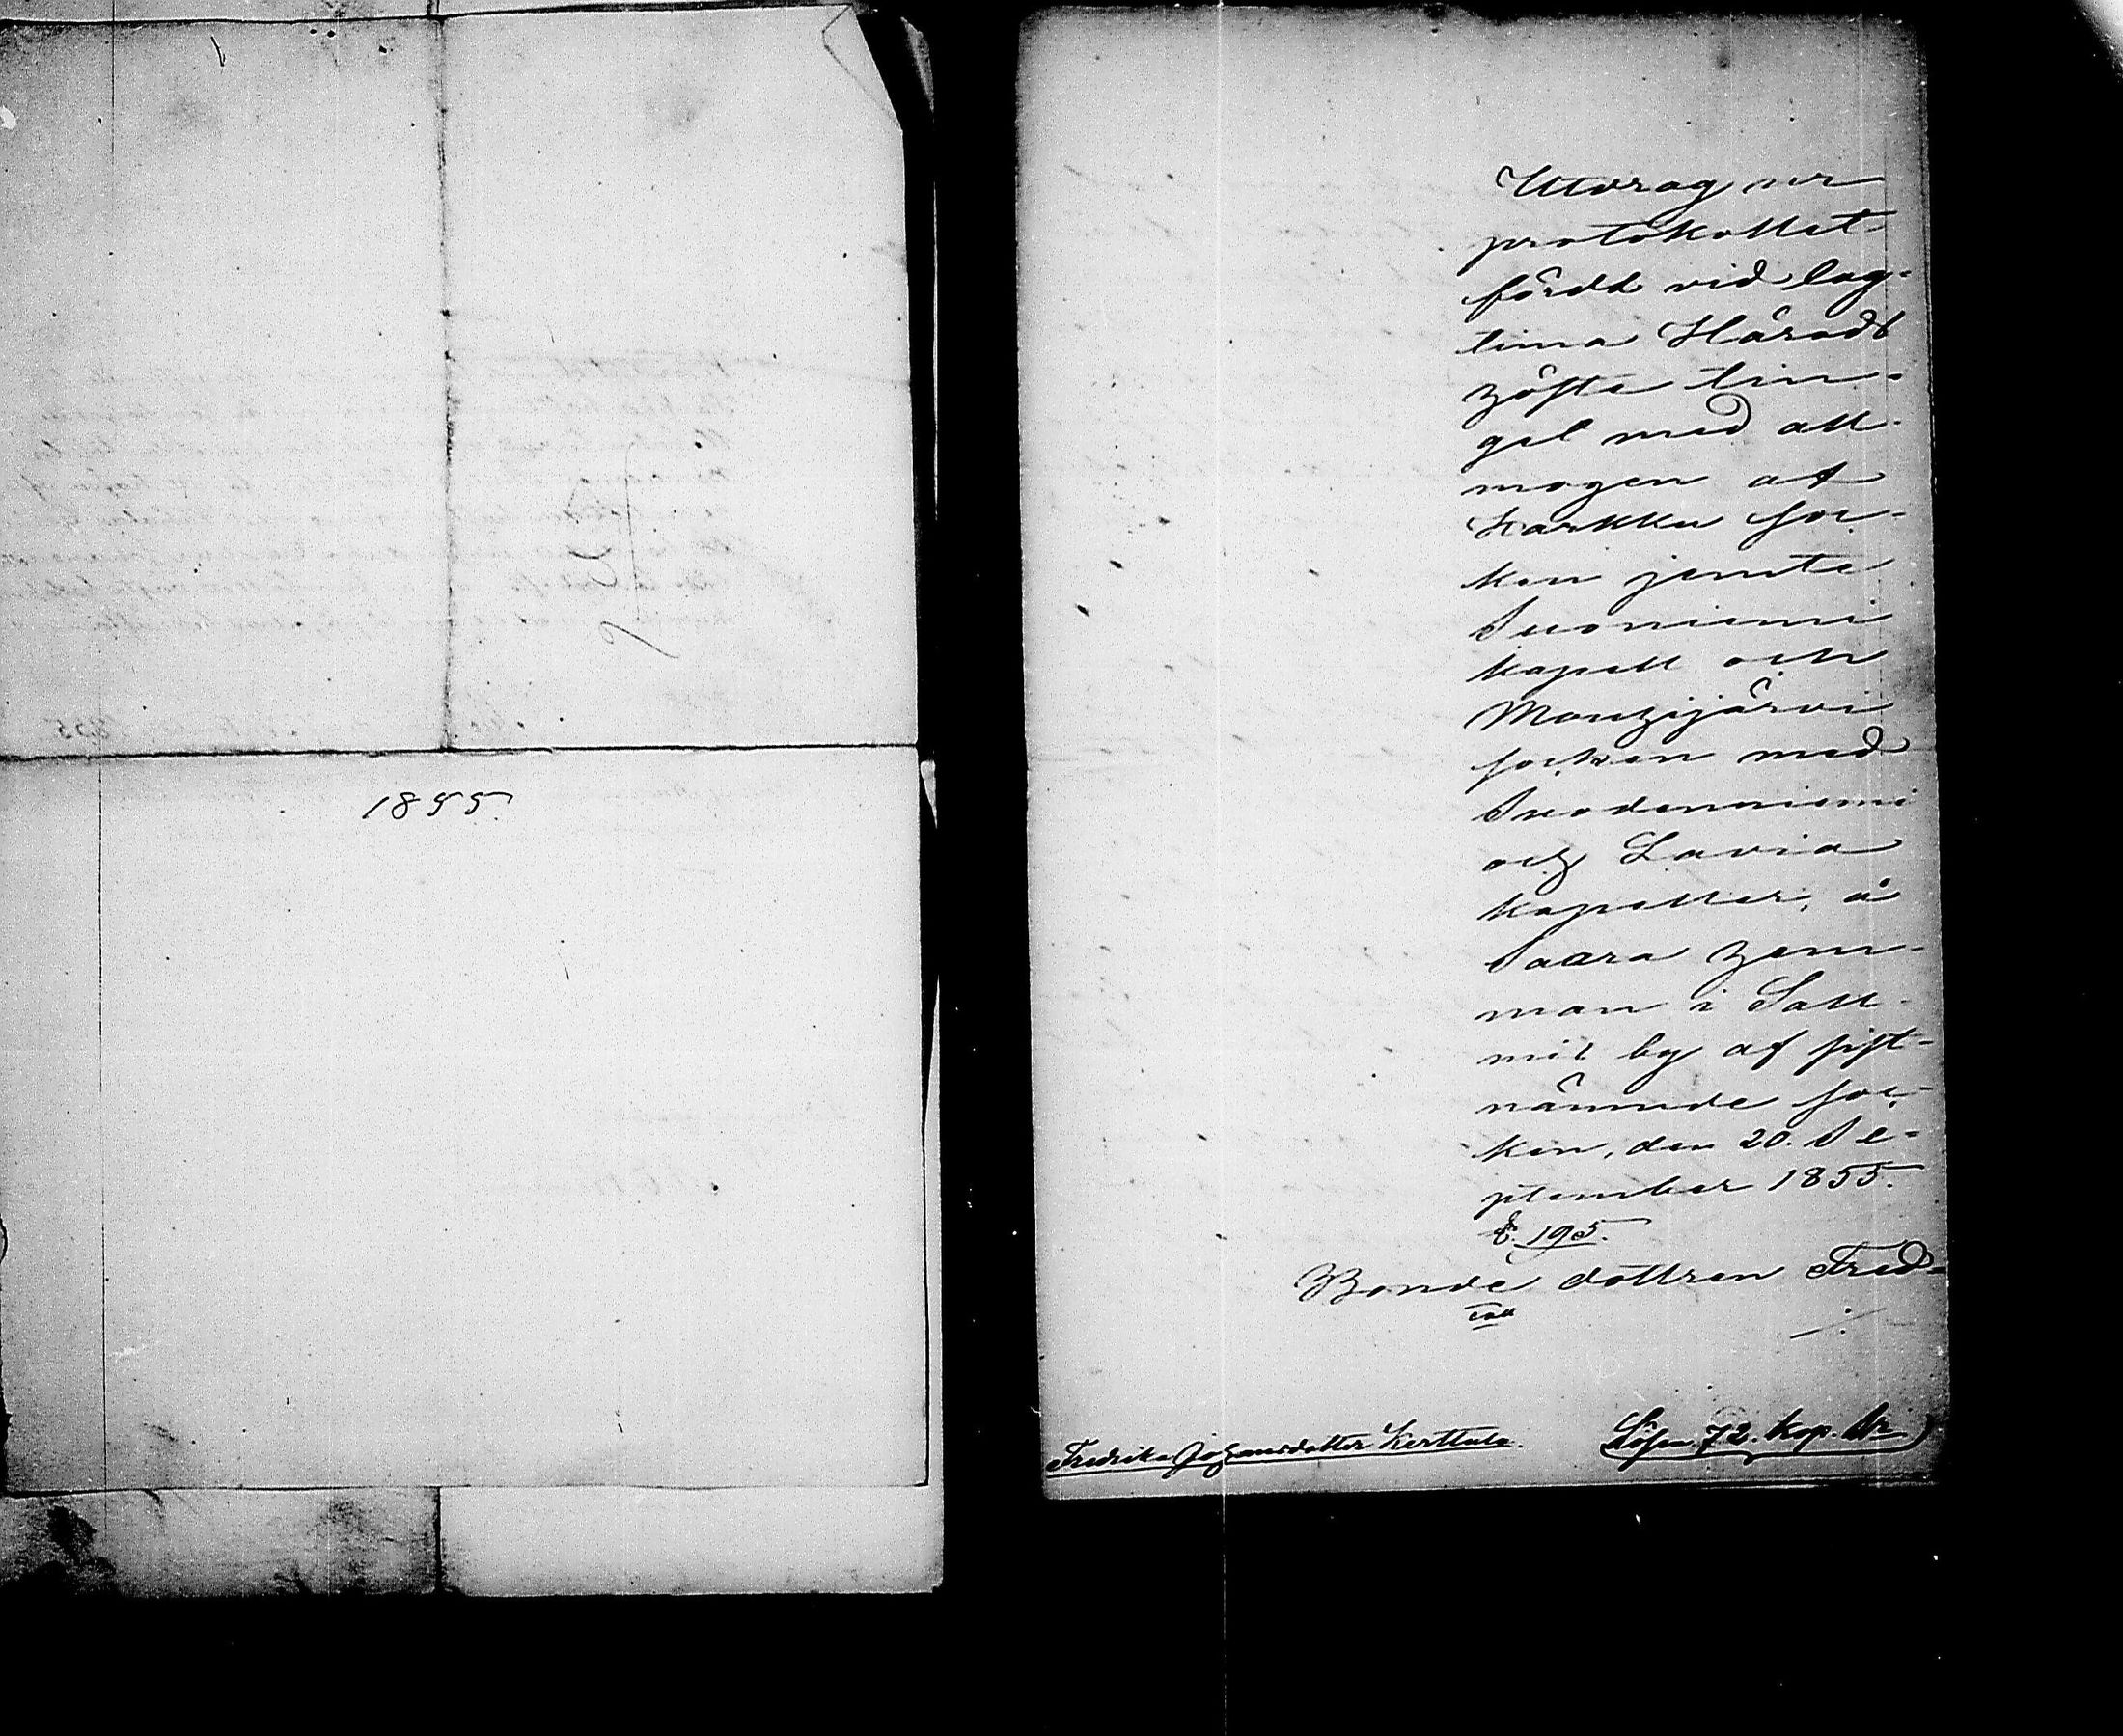 1855.
Utdrag ur
protokollet
fördt vid lag-
tima Härads
höste tin-
get med all-
mogen af
Karkku soc-
ken jemte
Suoniemi
kapell och
Mouhijärvi
socken med
Suodenniemi
och Lavia
kapeller, å
Saara hem-
man i Sall-
mis by af sist-
nämnde soc-
ken, den 20. Se-
ptember 1855.
§. 195.
Bonde dottren Fred-
./.
Fredrika Johansdotter Kerttula.
Lösen 72. kop. Sr